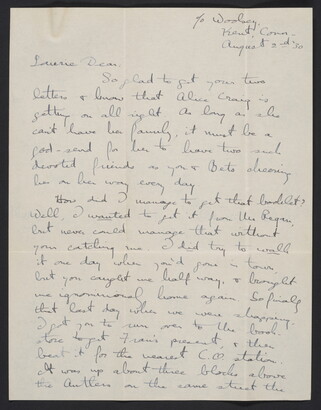 ℅ Woolsey,
Kent, Conn.
August 3rd '30
Dear.
So glad to get your two
letters & know that Alice Craig is
getting on all right. As long as she
can't have her family, it must be a
god-send for her to have two such
devoted friends as you & Bets cheering
her on her way every day.
How did I manage to get that booklet?
Well, I wanted to get it from the
but never could manage that without
your catching me. I did try to walk
it one day when you'd gone in town,
but you caught me half way, & brought
me ignominiously home again. So finally
that last day when we were shopping
I got you to run over to the book-
store to get Fran's present, & then
beat it for the nearest C.O. station.
It was up about three blocks above
the Antlers on the same street the